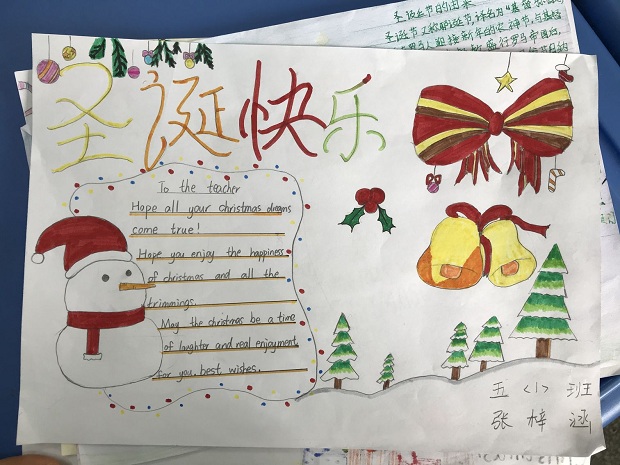 圣诞节的由来
圣诞节又称耶诞节,译名为"基督
圣诞快乐
To the teacher
Hope all your christmas dreams
come true!
Hope you enjoy the happiness
of christmas and all the
trimmings.
May the christmas be a time
of laughter and real enjoyment
for you. best wishes.
五〈1〉班
张梓涵